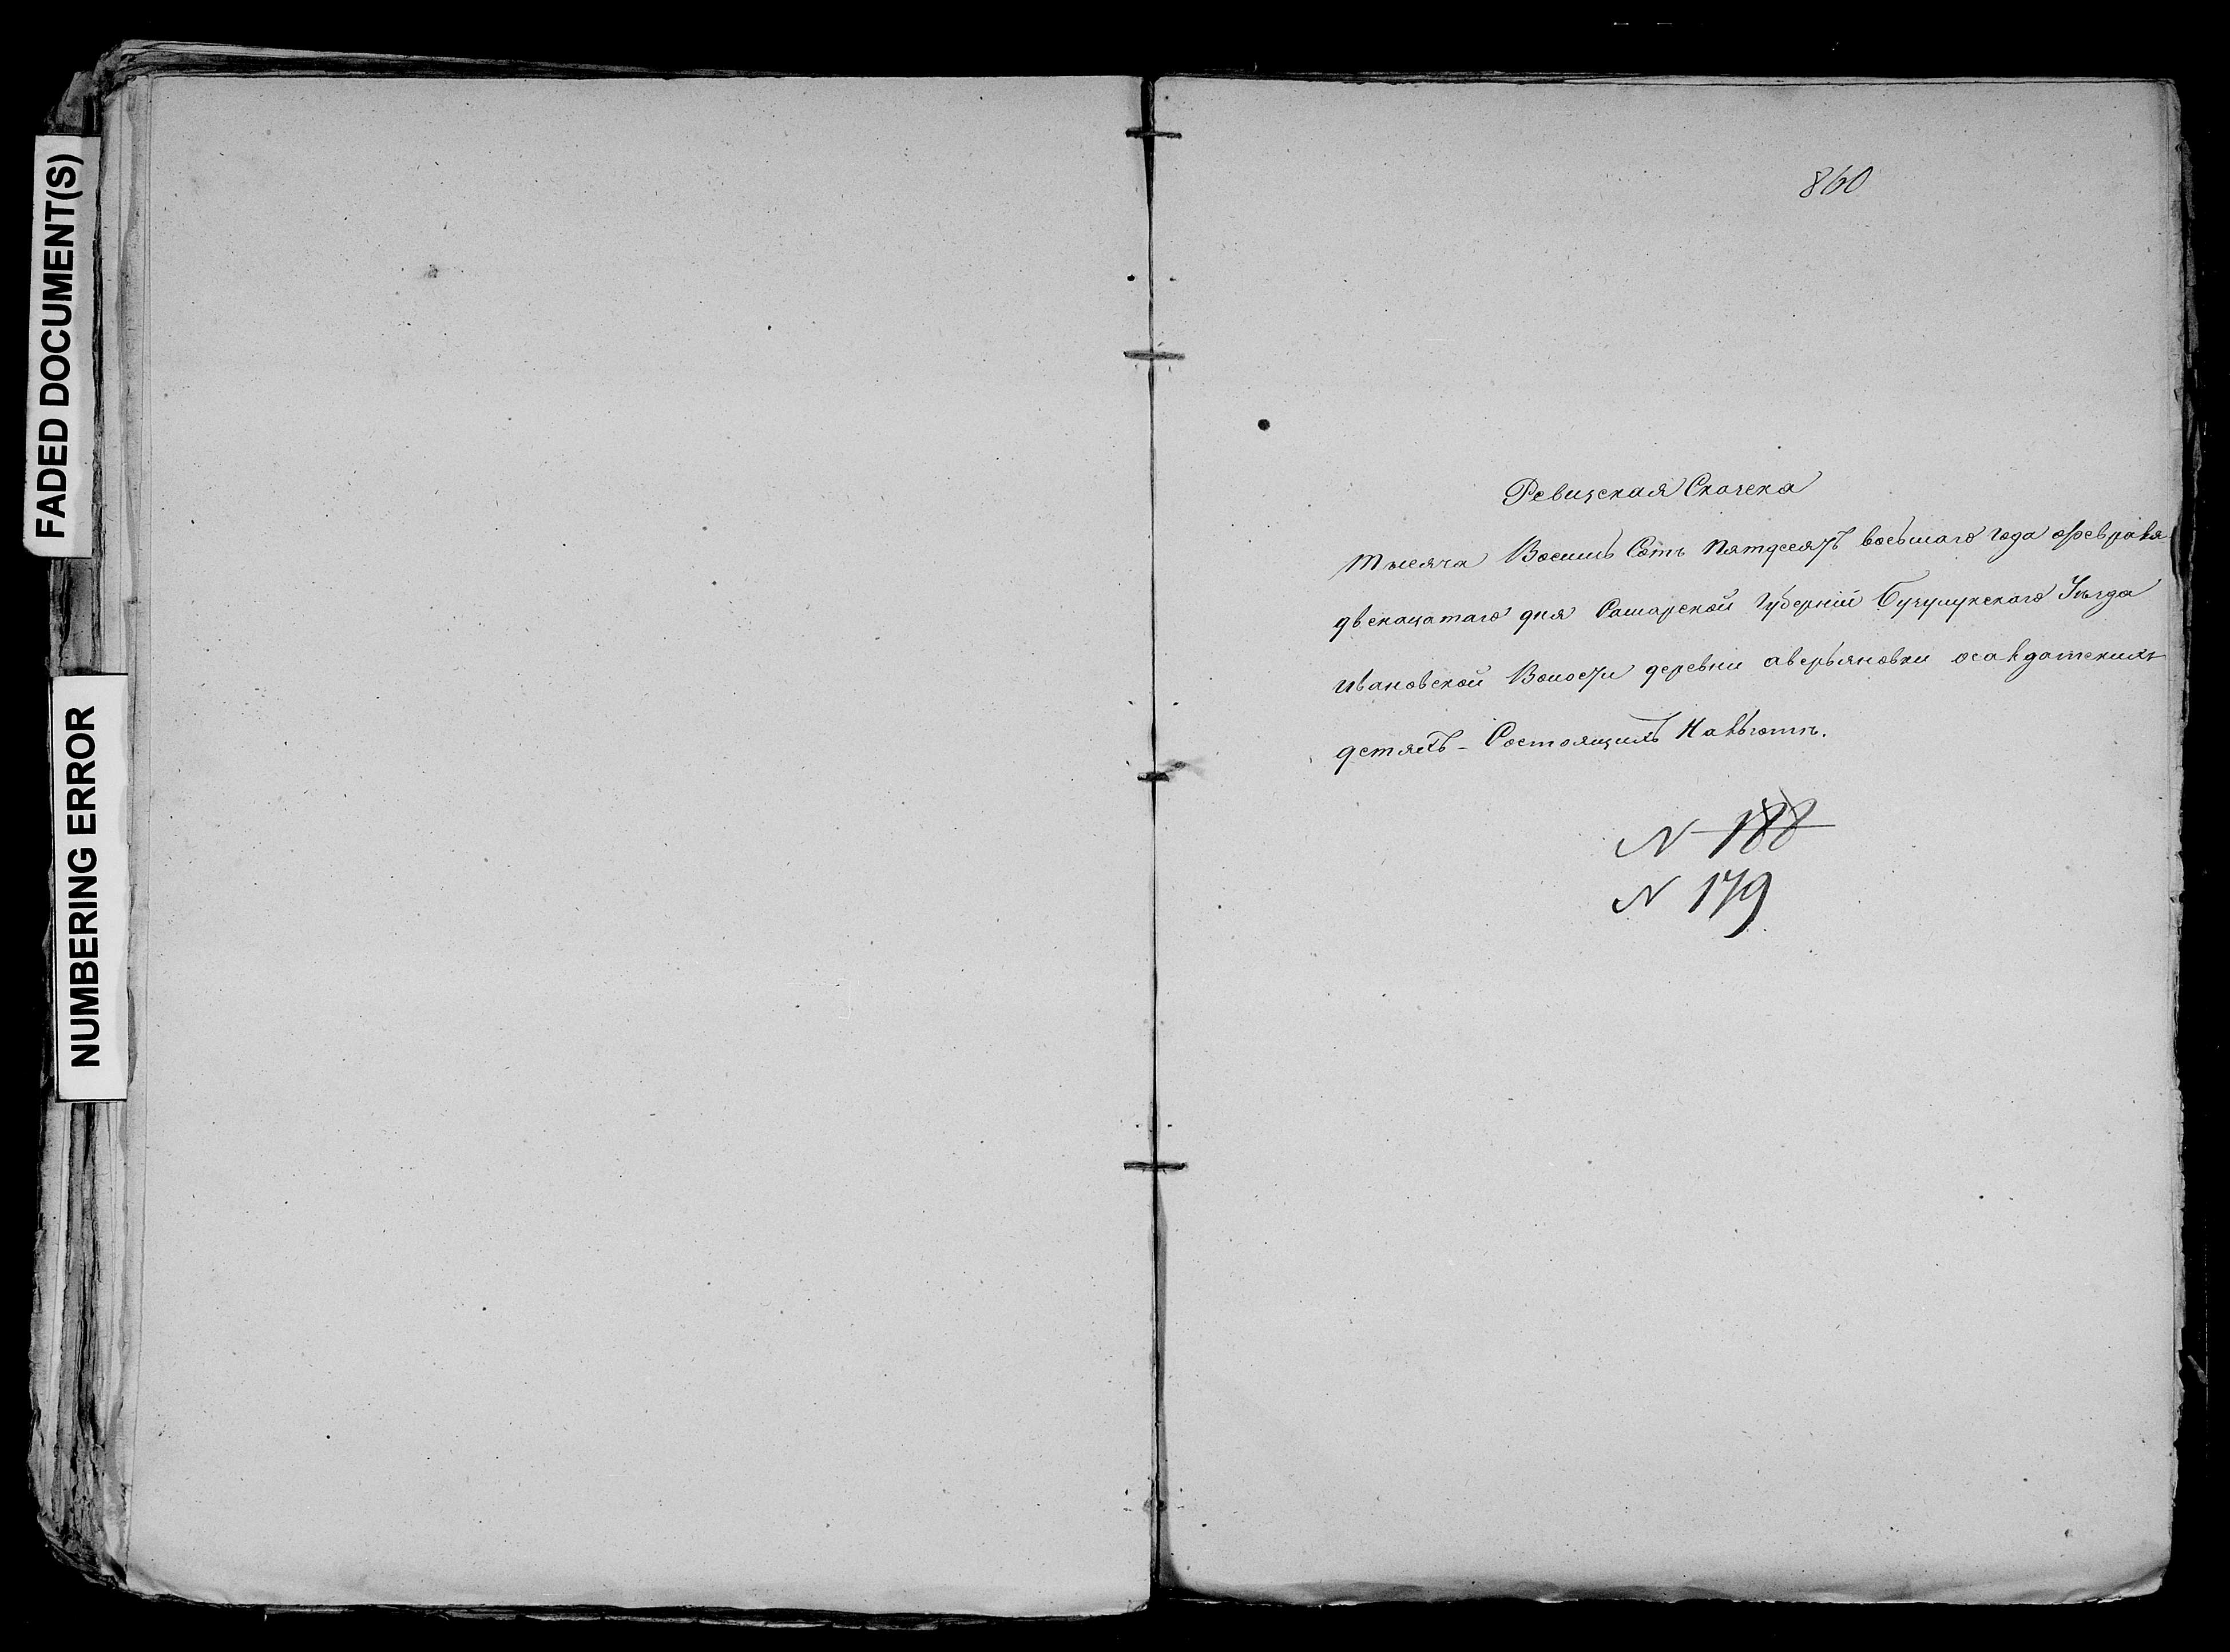 FADED DOCUMENT(S)
NUMBERING ERROR
860
Ревизская Сказска
тысяча Восимь Сотъ Пятдесятъ восьмаго года февраля
двенацатаго дня Самарской Губерніи Бузулукского Уезда
ивановской Волости деревни аверьяновки осалдатскихъ
детяхъ - Состоящихъ Нальготе.
N 188
N 179